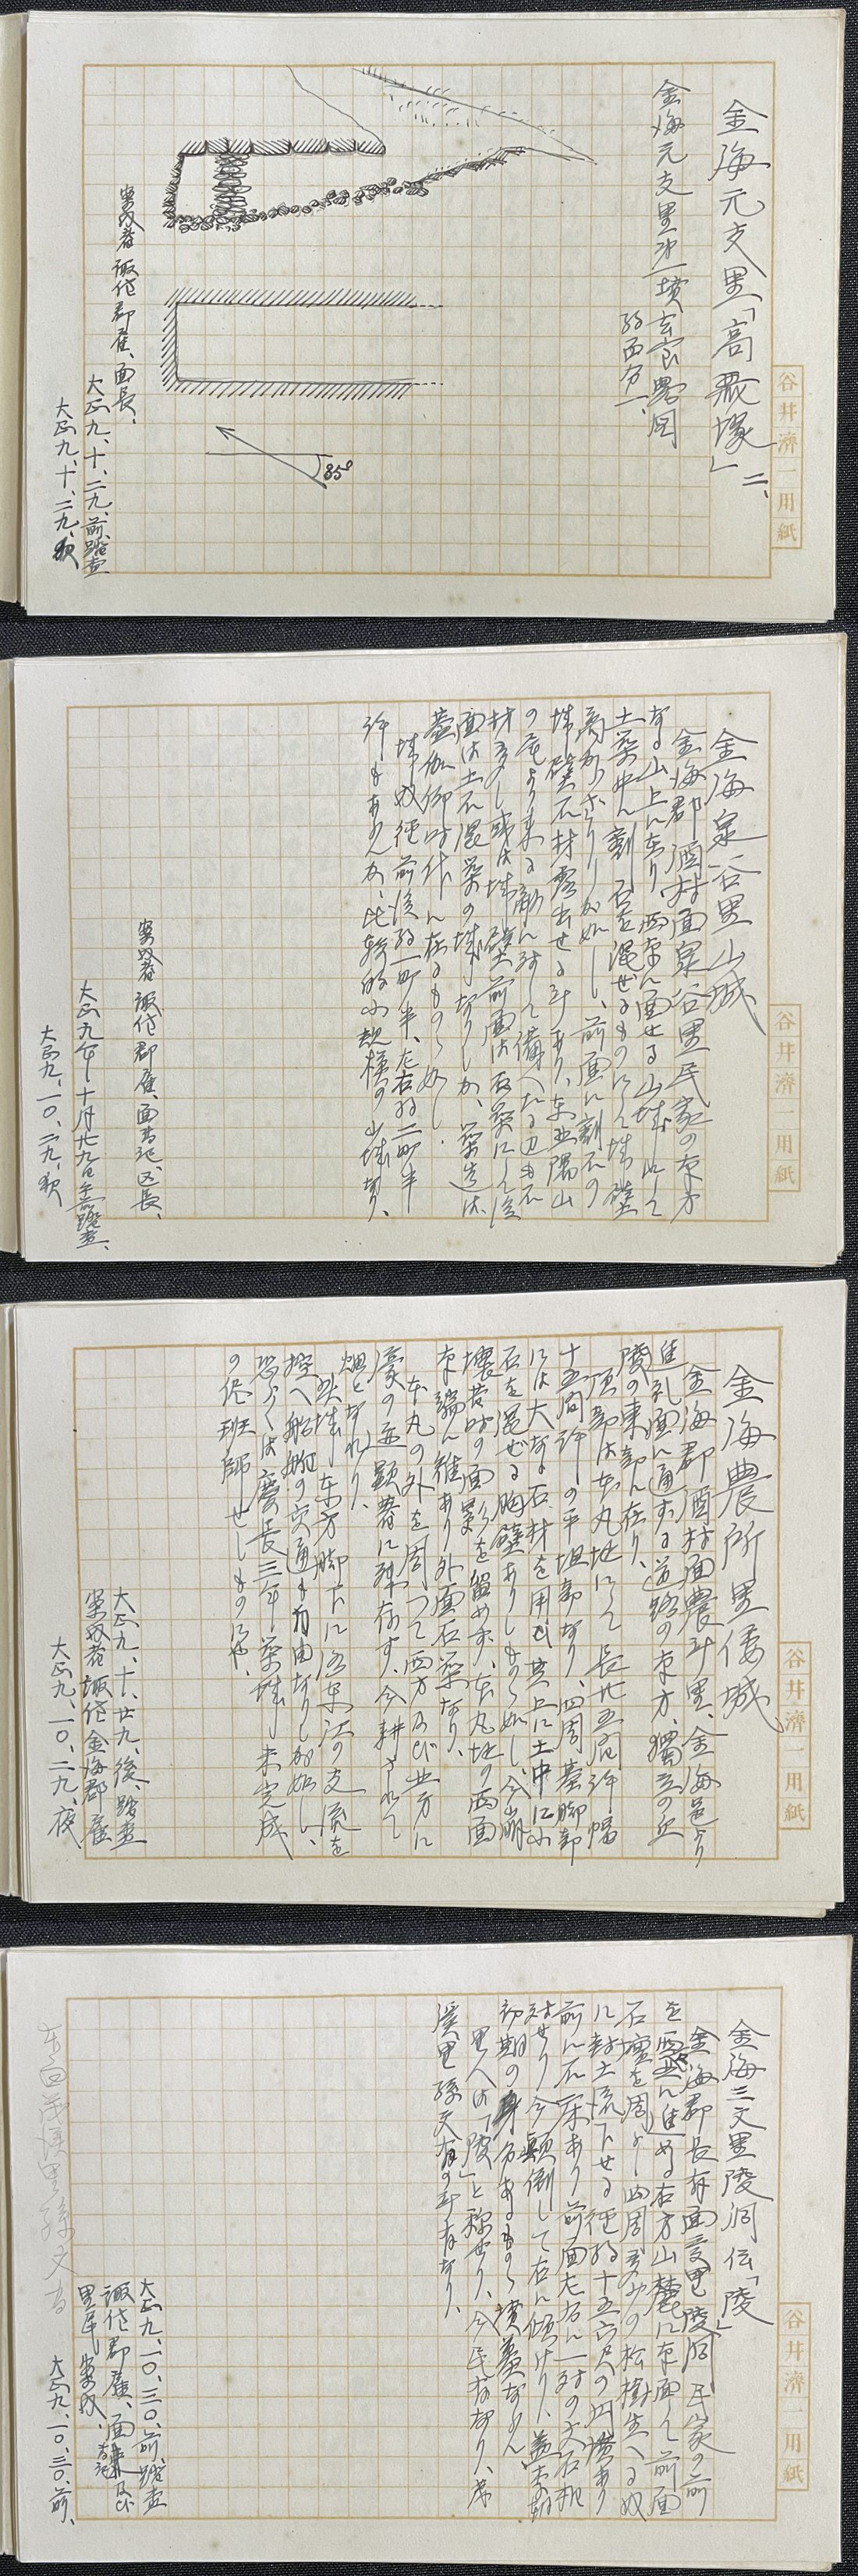 金海元支里「高飛塚」二、
金海元支里第一墳玄室略図
約百分一、
85°
案内者 諏佐郡雇、面長、
大正九、十、二九、前、踏査
大正九、十、二九、夜
谷井濟一用紙
金海泉谷里山城
金海郡酒村面泉谷里民家の東方
なる山上に在り 西南に面せる山城にして
土築中に割石を混ぜるものにして城壁
高からざりしが如し、前面に割石の
城壁石材露出せる所あり、東北隅山
の尾より来る敵に対して備へたる辺も石
材多し 或は城壁前面は石築にして後
面は土石混築の城なりしか、築造は
蓋伽倻時代に在るものゝ如し、
城内径前後約一町半、左右約二町半
許もあらんか、比較的小規模の山城なり、
案内者 諏佐郡雇、面書記、区長、
大正九年十月廿九日午前踏査、
大正九、一〇、二九、夜
谷井濟一用紙
金海農所里倭城
金海郡酒村面農所里、金海邑より
進礼面に通ずる道路の東方、獨立の丘
陵の東部に在り、
頂部は本丸址にして長廿五间許幅
十五间許の平坦部なり、四周基脚部
には大なる石材を用ゐ其上に土中に小
石を混ぜる胸壁ありしものゝ如し、今崩
壊昔時の面影を留めず、本丸址の西面
東端に維あり外面石築なり、
本丸の外を周つて西方及び北方に
濠の址顕著に残存す、今耕されて
畑となれり、
此城東方脚下に洛東江の支流を
控へ船舶の交通も自由なりしが如し、
恐らくは慶長三年築城未完成
の侭班師せしものにや、
大正九、十、廿九、後、踏査
案内者 諏佐金海郡雇
大正九、一〇、二九、夜
谷井濟一用紙
金海三文里陵洞伝「陵」
金海郡長有面三文里陵洞民家の前
を西北に進める右方山麓に東面して前面
石壇を周らし四周若干の松樹生へる如
に封土流下せる径約十五六尺の円墳あり
前に石床あり前面左右に一対の文石相
対せり今顛倒して右に傾けり、蓋李朝
初期の身分あるものゝ墳墓ならん、
里人は「陵」と称せり、今民有なり、茂
渓里孫文有の所有なり、
大正九、一〇、三〇、前、踏査
諏佐郡雇、面書記及び
里民 案内、
大正九、一〇、三〇、前、
谷井濟一用紙